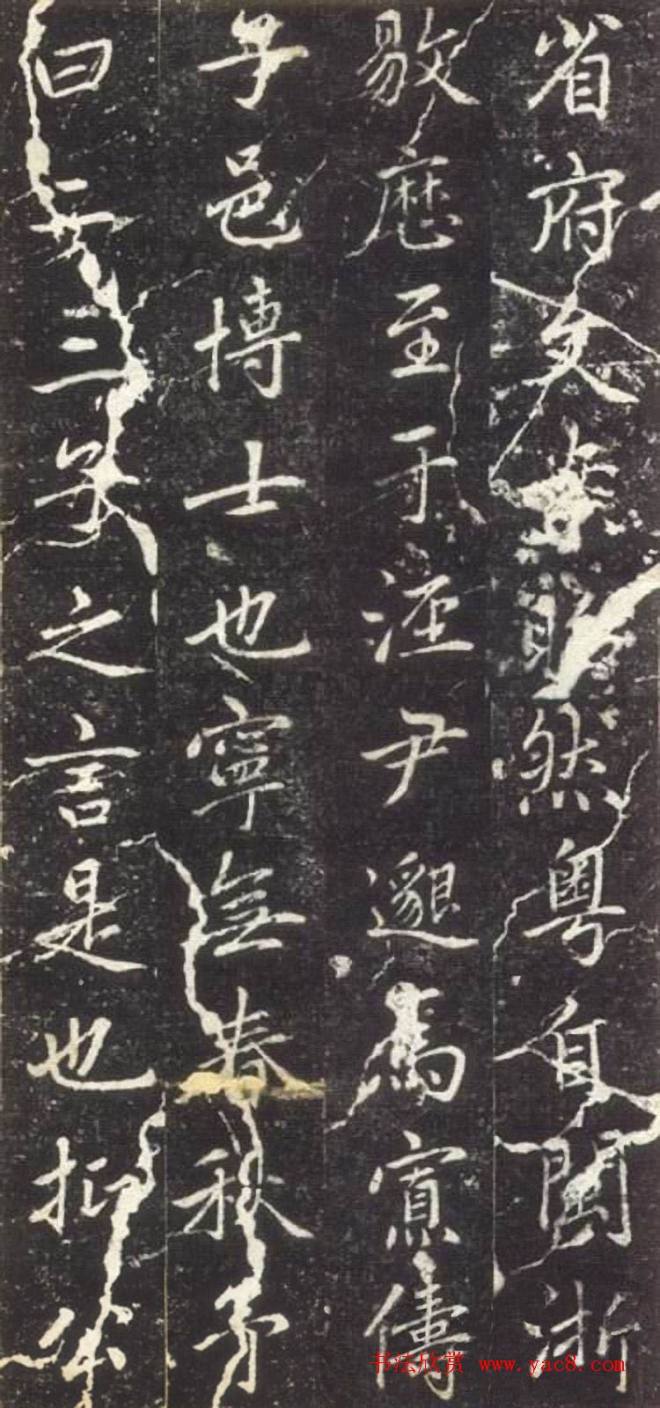 省府文然粤自閩浙
敭歷至于涇尹邈焉寡儔
子邑博士也寧無春秋
曰二三子之言是也抑
书法欣赏 www.yac8.com